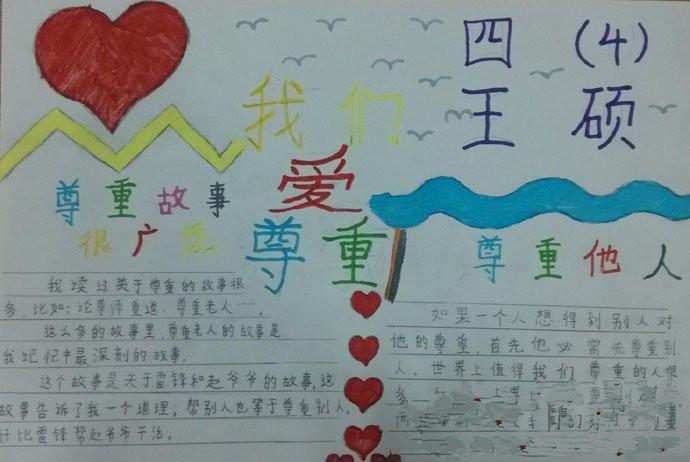 四（4）
王硕
我们
爱
尊重
尊重故事
很广泛
我读过关于尊重的故事很
多，比如：论尊师重道、尊重老人……。
这么多的故事里，尊重老人的故事是
我记忆中最深刻的故事。
这个故事是关于雷锋和赵爷爷的故事，这
故事告诉了我一个道理，帮别人也等于尊重别人，
好比雷锋帮赵爷爷干活。
尊重他人
如果一个人想得到别人对
他的尊重，首先他必需先尊重别
人。世界上值得我们尊重的人很
多